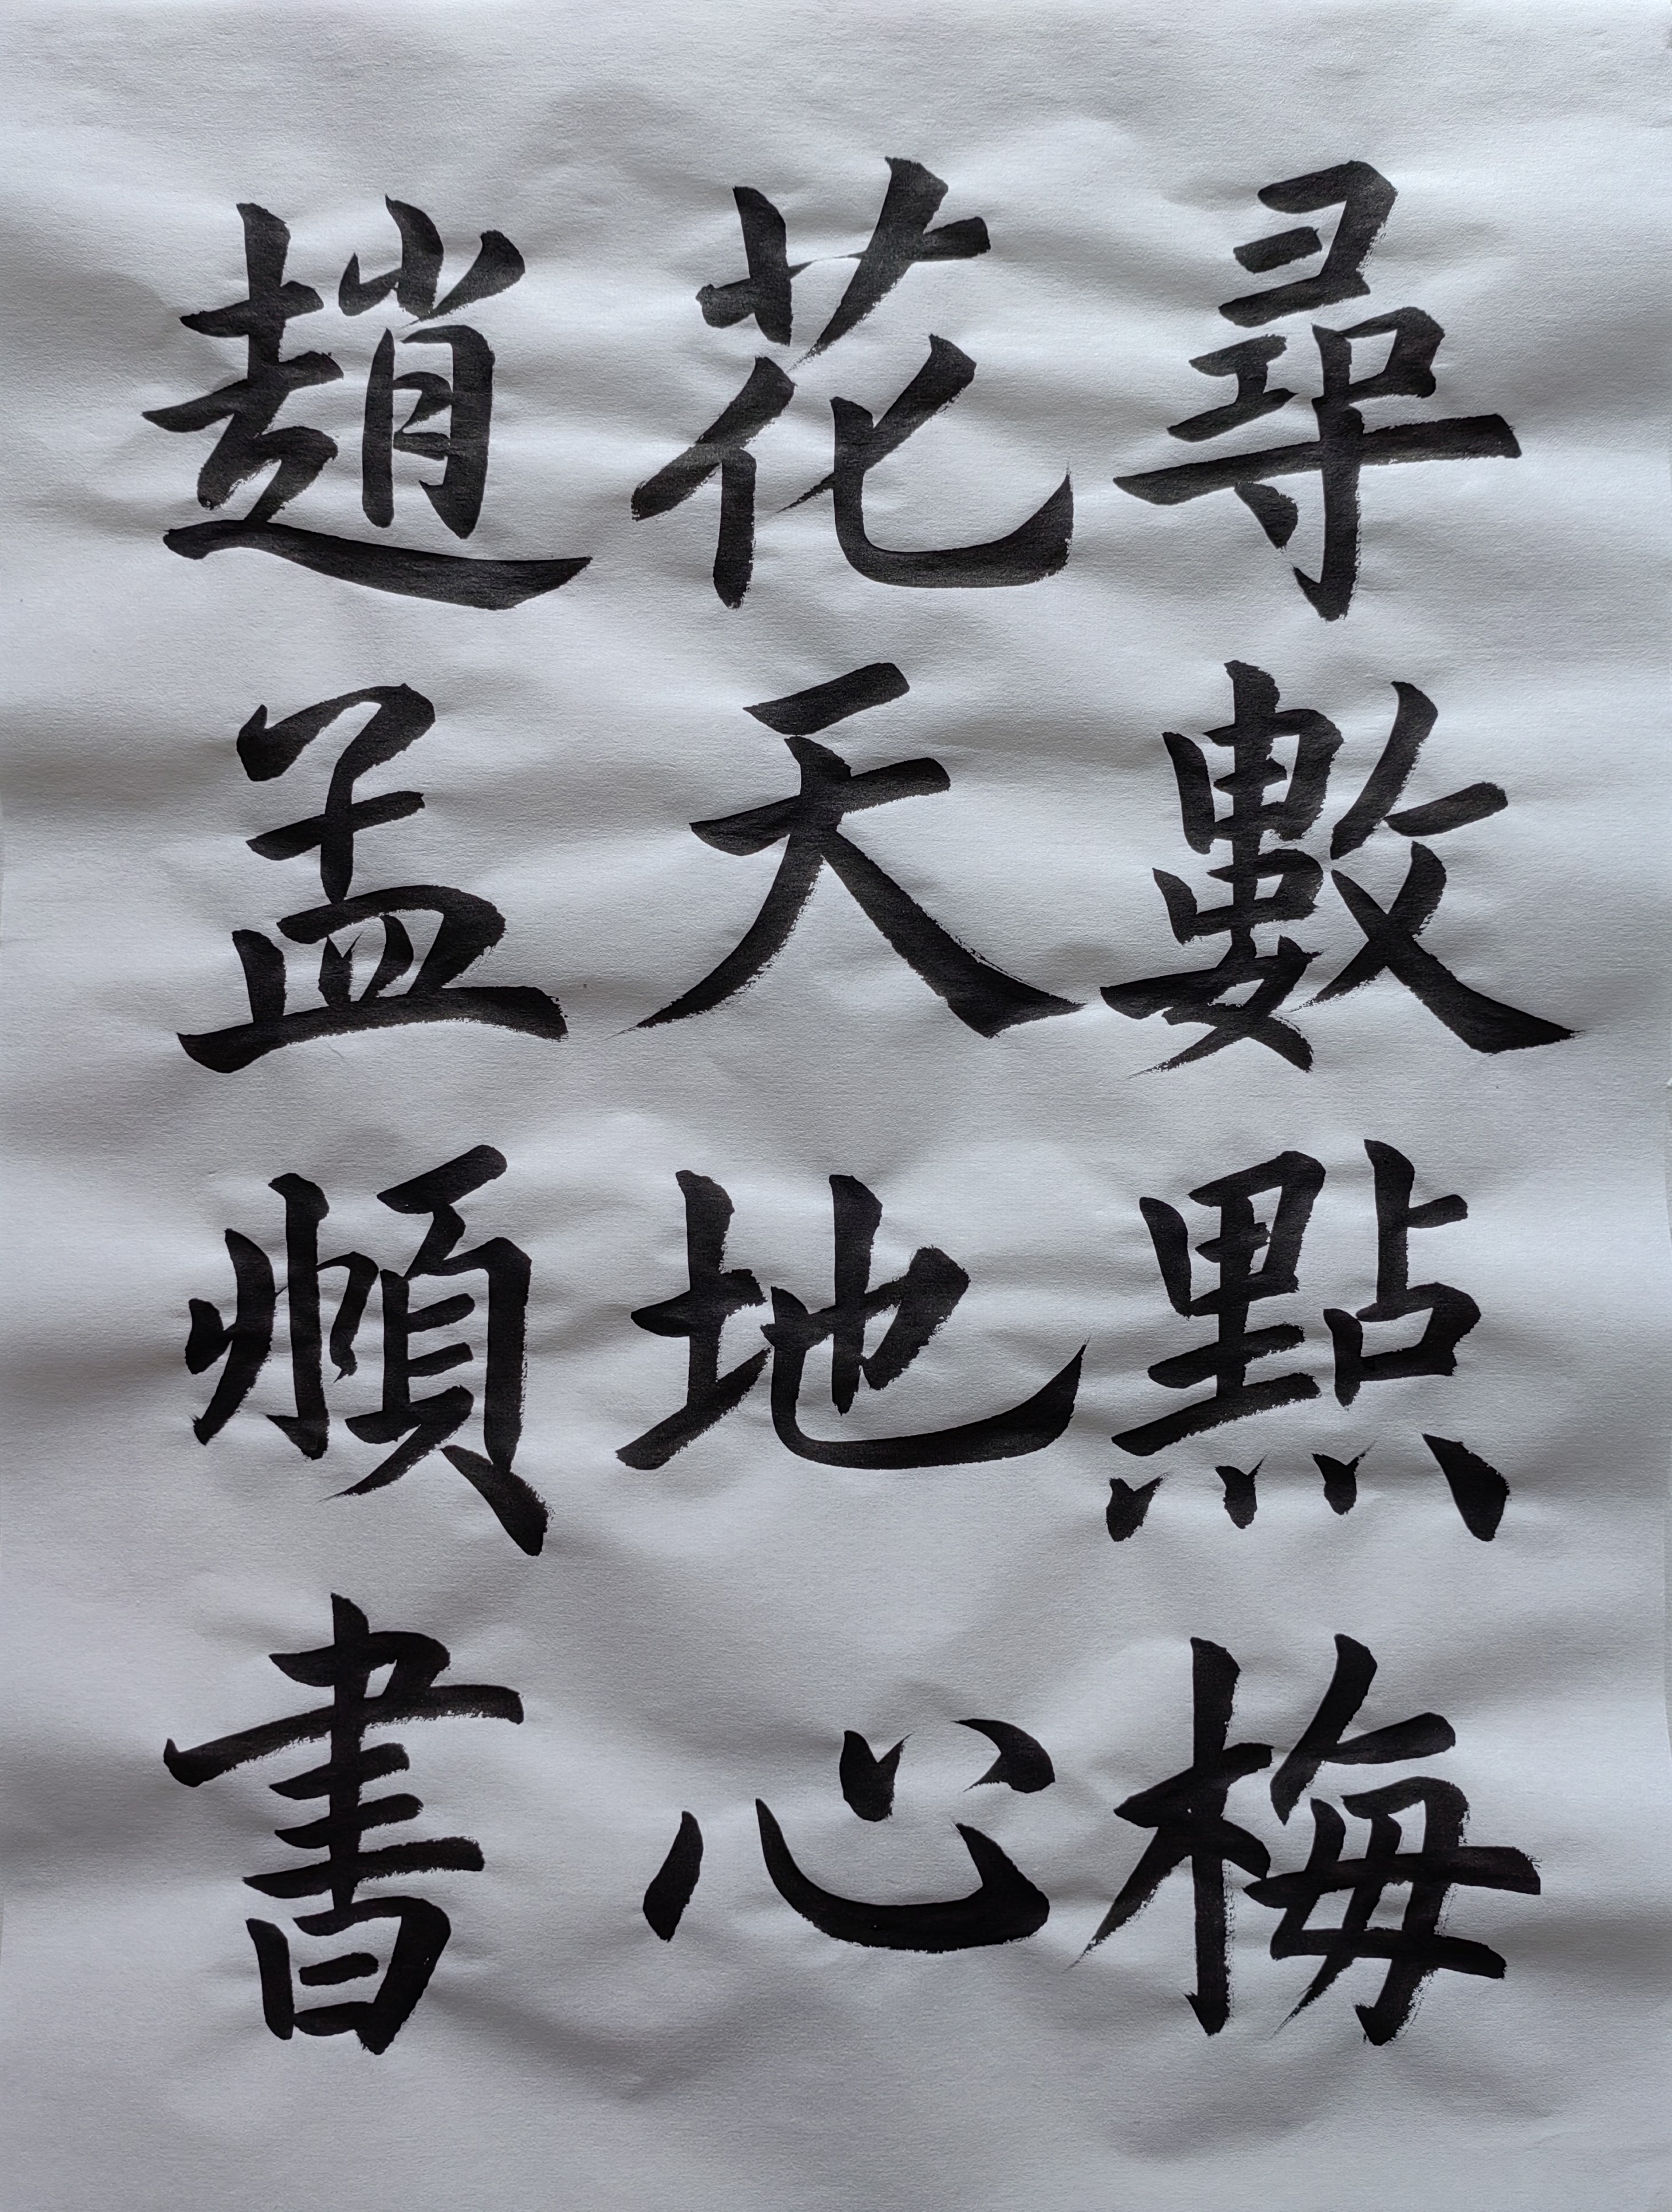 尋數點梅
花天地心
趙孟頫書